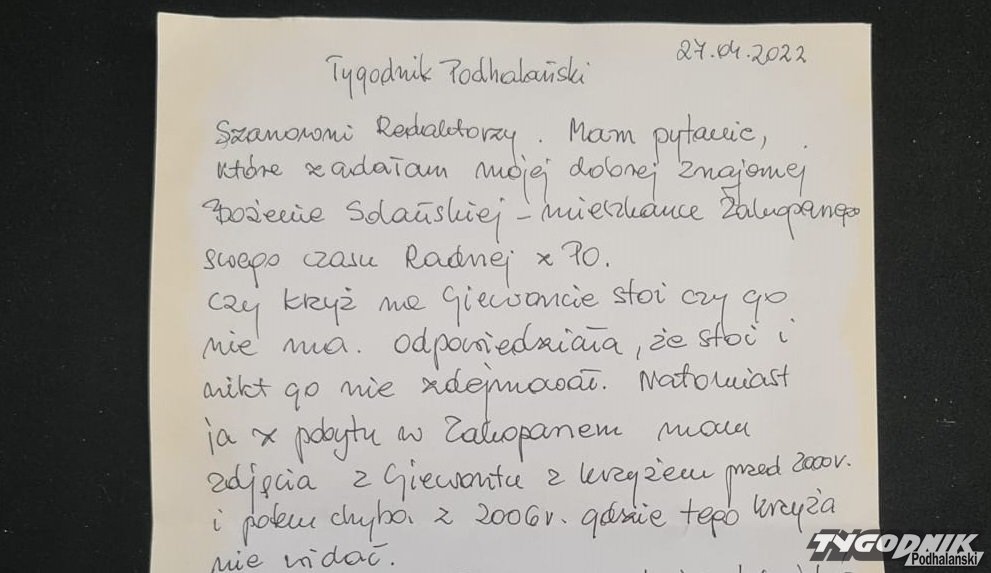 27.04.2022
Tygodnik Podhalański
Szanowni Redaktorzy. Mam pytanie,
które zadałam mojej dobrej znajomej
Bożenie Solańskiej - mieszkance Zakopanego
swego czasu Radnej z PO.
Czy krzyż na Giewoncie stoi czy go
nie ma. Odpowiedziała, że stoi i
nikt go nie zdejmował. Natomiast
ja z pobytu w Zakopanem mam
zdjęcia z Giewontu z krzyżem przed 2000r.
i potem chyba z 2006r. gdzie tego krzyża
nie widać.
TYGODNIK
Podhalański